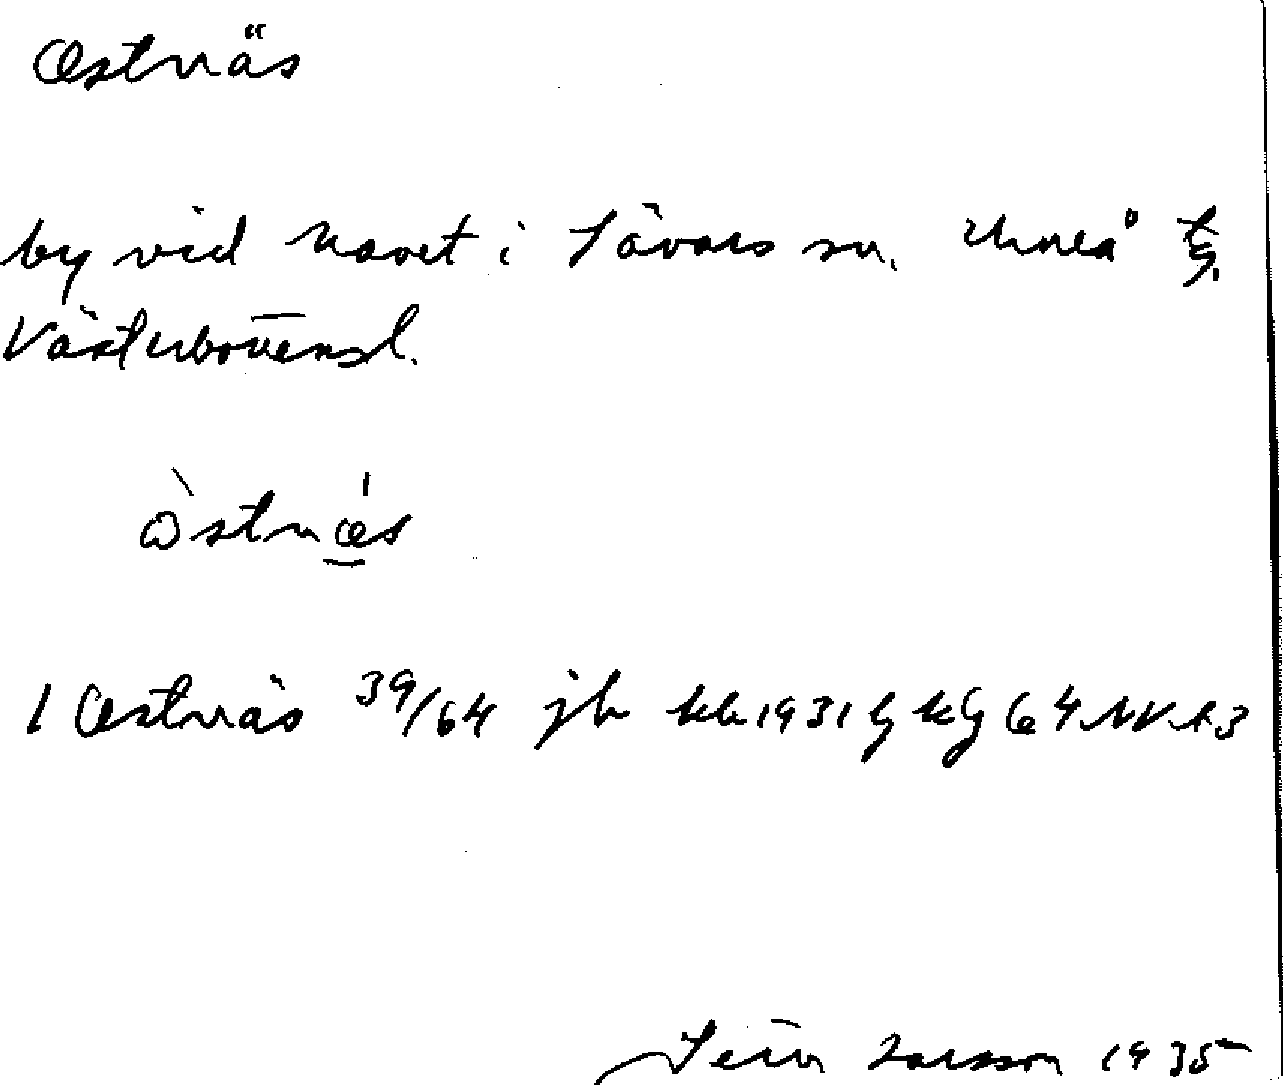 Ostnäs
by vid havet i Sävars sn. Umeå tg.
Västerbottensl.
òstnǽs
1 Ostnäs 39/64 jb kb 1931 G kG 64 NV
Seth Larsson 1935